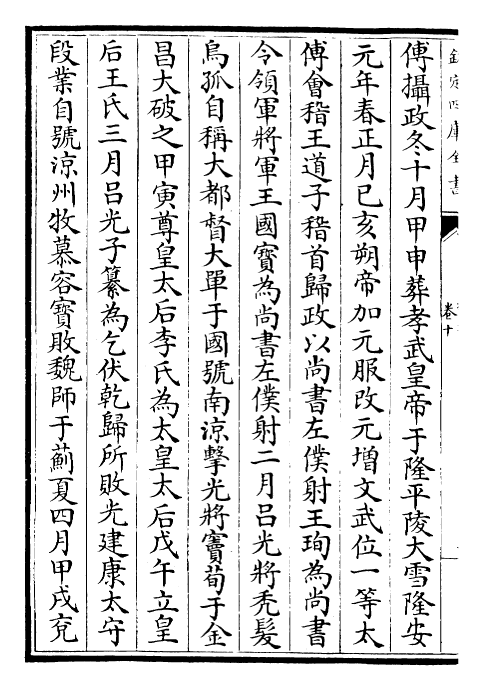 欽定四庫全書
卷十
傅攝政冬十月甲申葬孝武皇帝于隆平陵大雪隆安
元年春正月己亥朔帝加元服改元增文武位一等太
傅會稽王道子稽首歸政以尚書左僕射王珣為尚書
令領軍將軍王國寶為尚書左僕射二月吕光將秃髮
烏孤自稱大都督大單于國號南涼擊光將竇苟于金
昌大破之甲寅尊皇太后李氏為太皇太后戊午立皇
后王氏三月吕光子纂為乞伏乾歸所敗光建康太守
段業自號涼州牧慕容寶敗魏師于薊夏四月甲戌兖